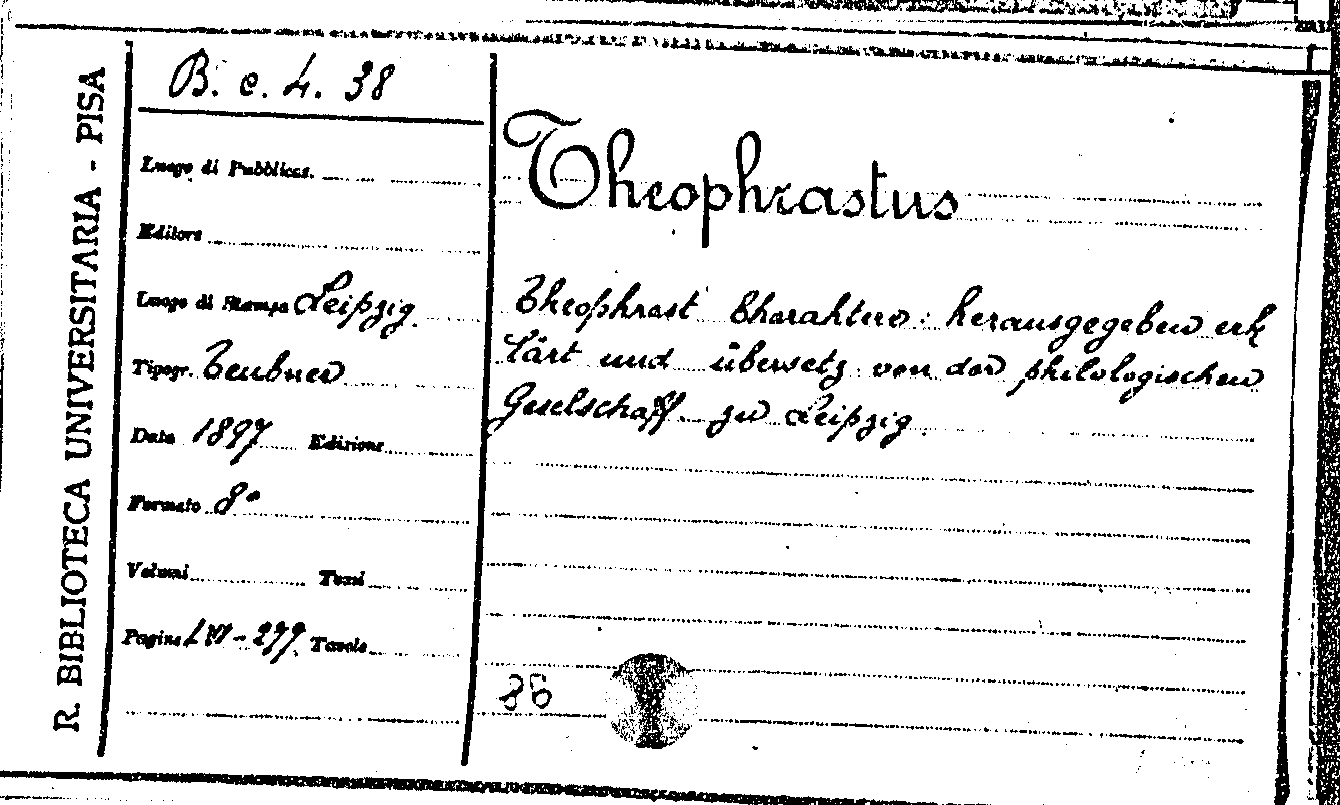 R. BIBLIOTECA UNIVERSITARIA - PISA
B. c. 4. 38
Luogo di Pubblicaz.
Editore
Luogo di Stampa Leipzig.
Tipogr. Teubner
Data 1897 Edizione
Formato 8°
Volumi Tomi
Pagine - 277. Tavole
Theophrastus
Theophrast Charaktere: herausgegeben erk
lärt und übersetz von der philologischen
Geselschaff zu Leipzig.
86